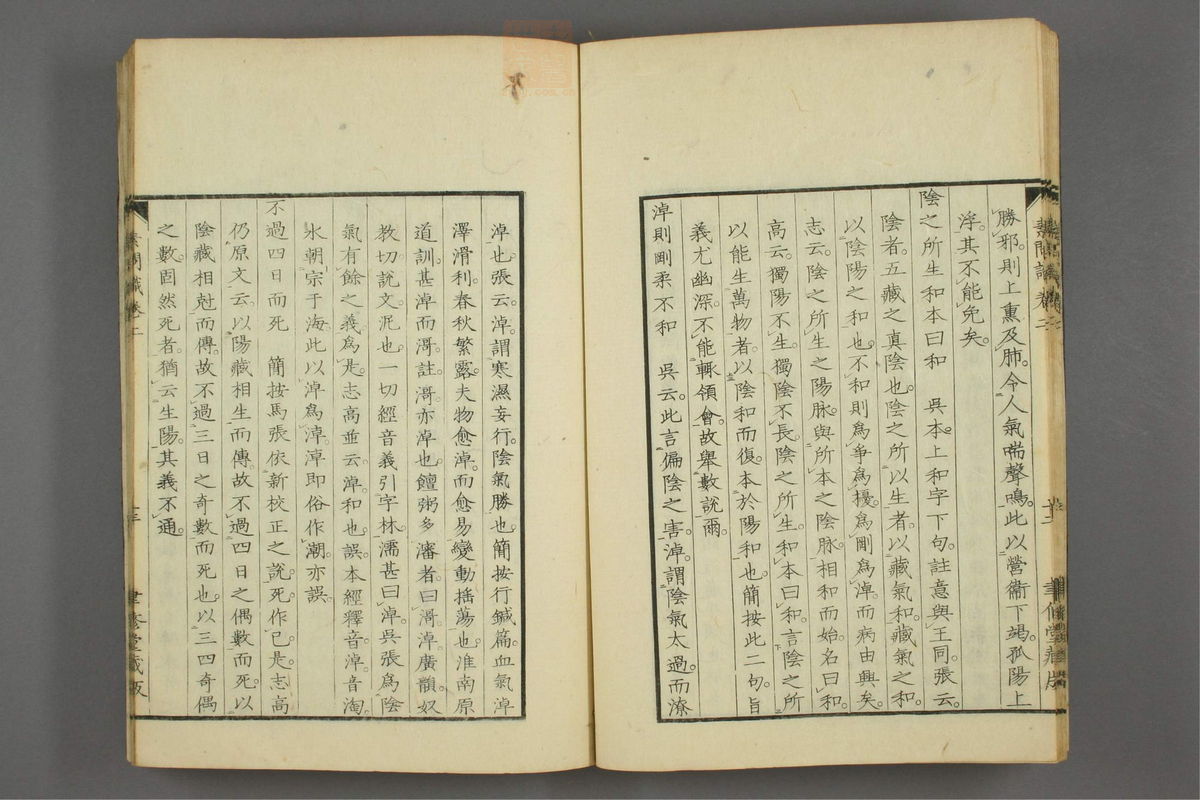 勝邪則上熏及肺。令人氣喘聲鳴。此以營衞下竭。孤陽上
浮。其不能免矣。
陰之所生和本曰和　吳本上和字下句。註意與王同。張云。
陰者。五藏之眞陰也。陰之所以生者。以藏氣和。藏氣之和。
以陰陽之和也。不和則爲爭爲擾。爲剛爲淖。而病由興矣。
志云。陰之所生之陽脉。與所本之陰脉。相和而始名曰和。
高云。獨陽不生。獨陰不長。陰之所生。和本曰和。言陰之所
以能生萬物者。以陰和而復。本於陽和也。簡按此二句。旨
義尤幽深。不能輒領會。故舉數說爾。
淖則剛柔不和　吳云。此言偏陰之害。淖。謂陰氣太過而潦
淖也。張云。淖。謂寒濕妄行。陰氣勝也。簡按行鍼篇。血氣淖
澤滑利。春秋繁露。夫物愈淖。而愈易變動搖蕩也。淮南原
道訓。甚淖而滒。註。滒。亦淖也。饘粥多瀋者。曰滒。淖。廣韻。奴
教切。說文。泥也。一切經音義引字林。濡甚曰淖。吳張爲陰
氣有餘之義爲是。志高並云。淖。和也。誤。本經釋音。淖。音淘。
水朝宗于海。此以淖爲淖。淖卽俗作潮。亦誤。
不過四日而死　簡按馬張依新校正之說。死作已。是。志高
仍原文云。以陽藏相生而傳。故不過四日之偶數而死。以
陰藏相尅而傳。故不過三日之奇數而死也。以三四奇偶
之數。固然死者。猶云生陽。其義不通。
素問識卷二
聿修堂藏版
素問識卷二
聿修堂藏版